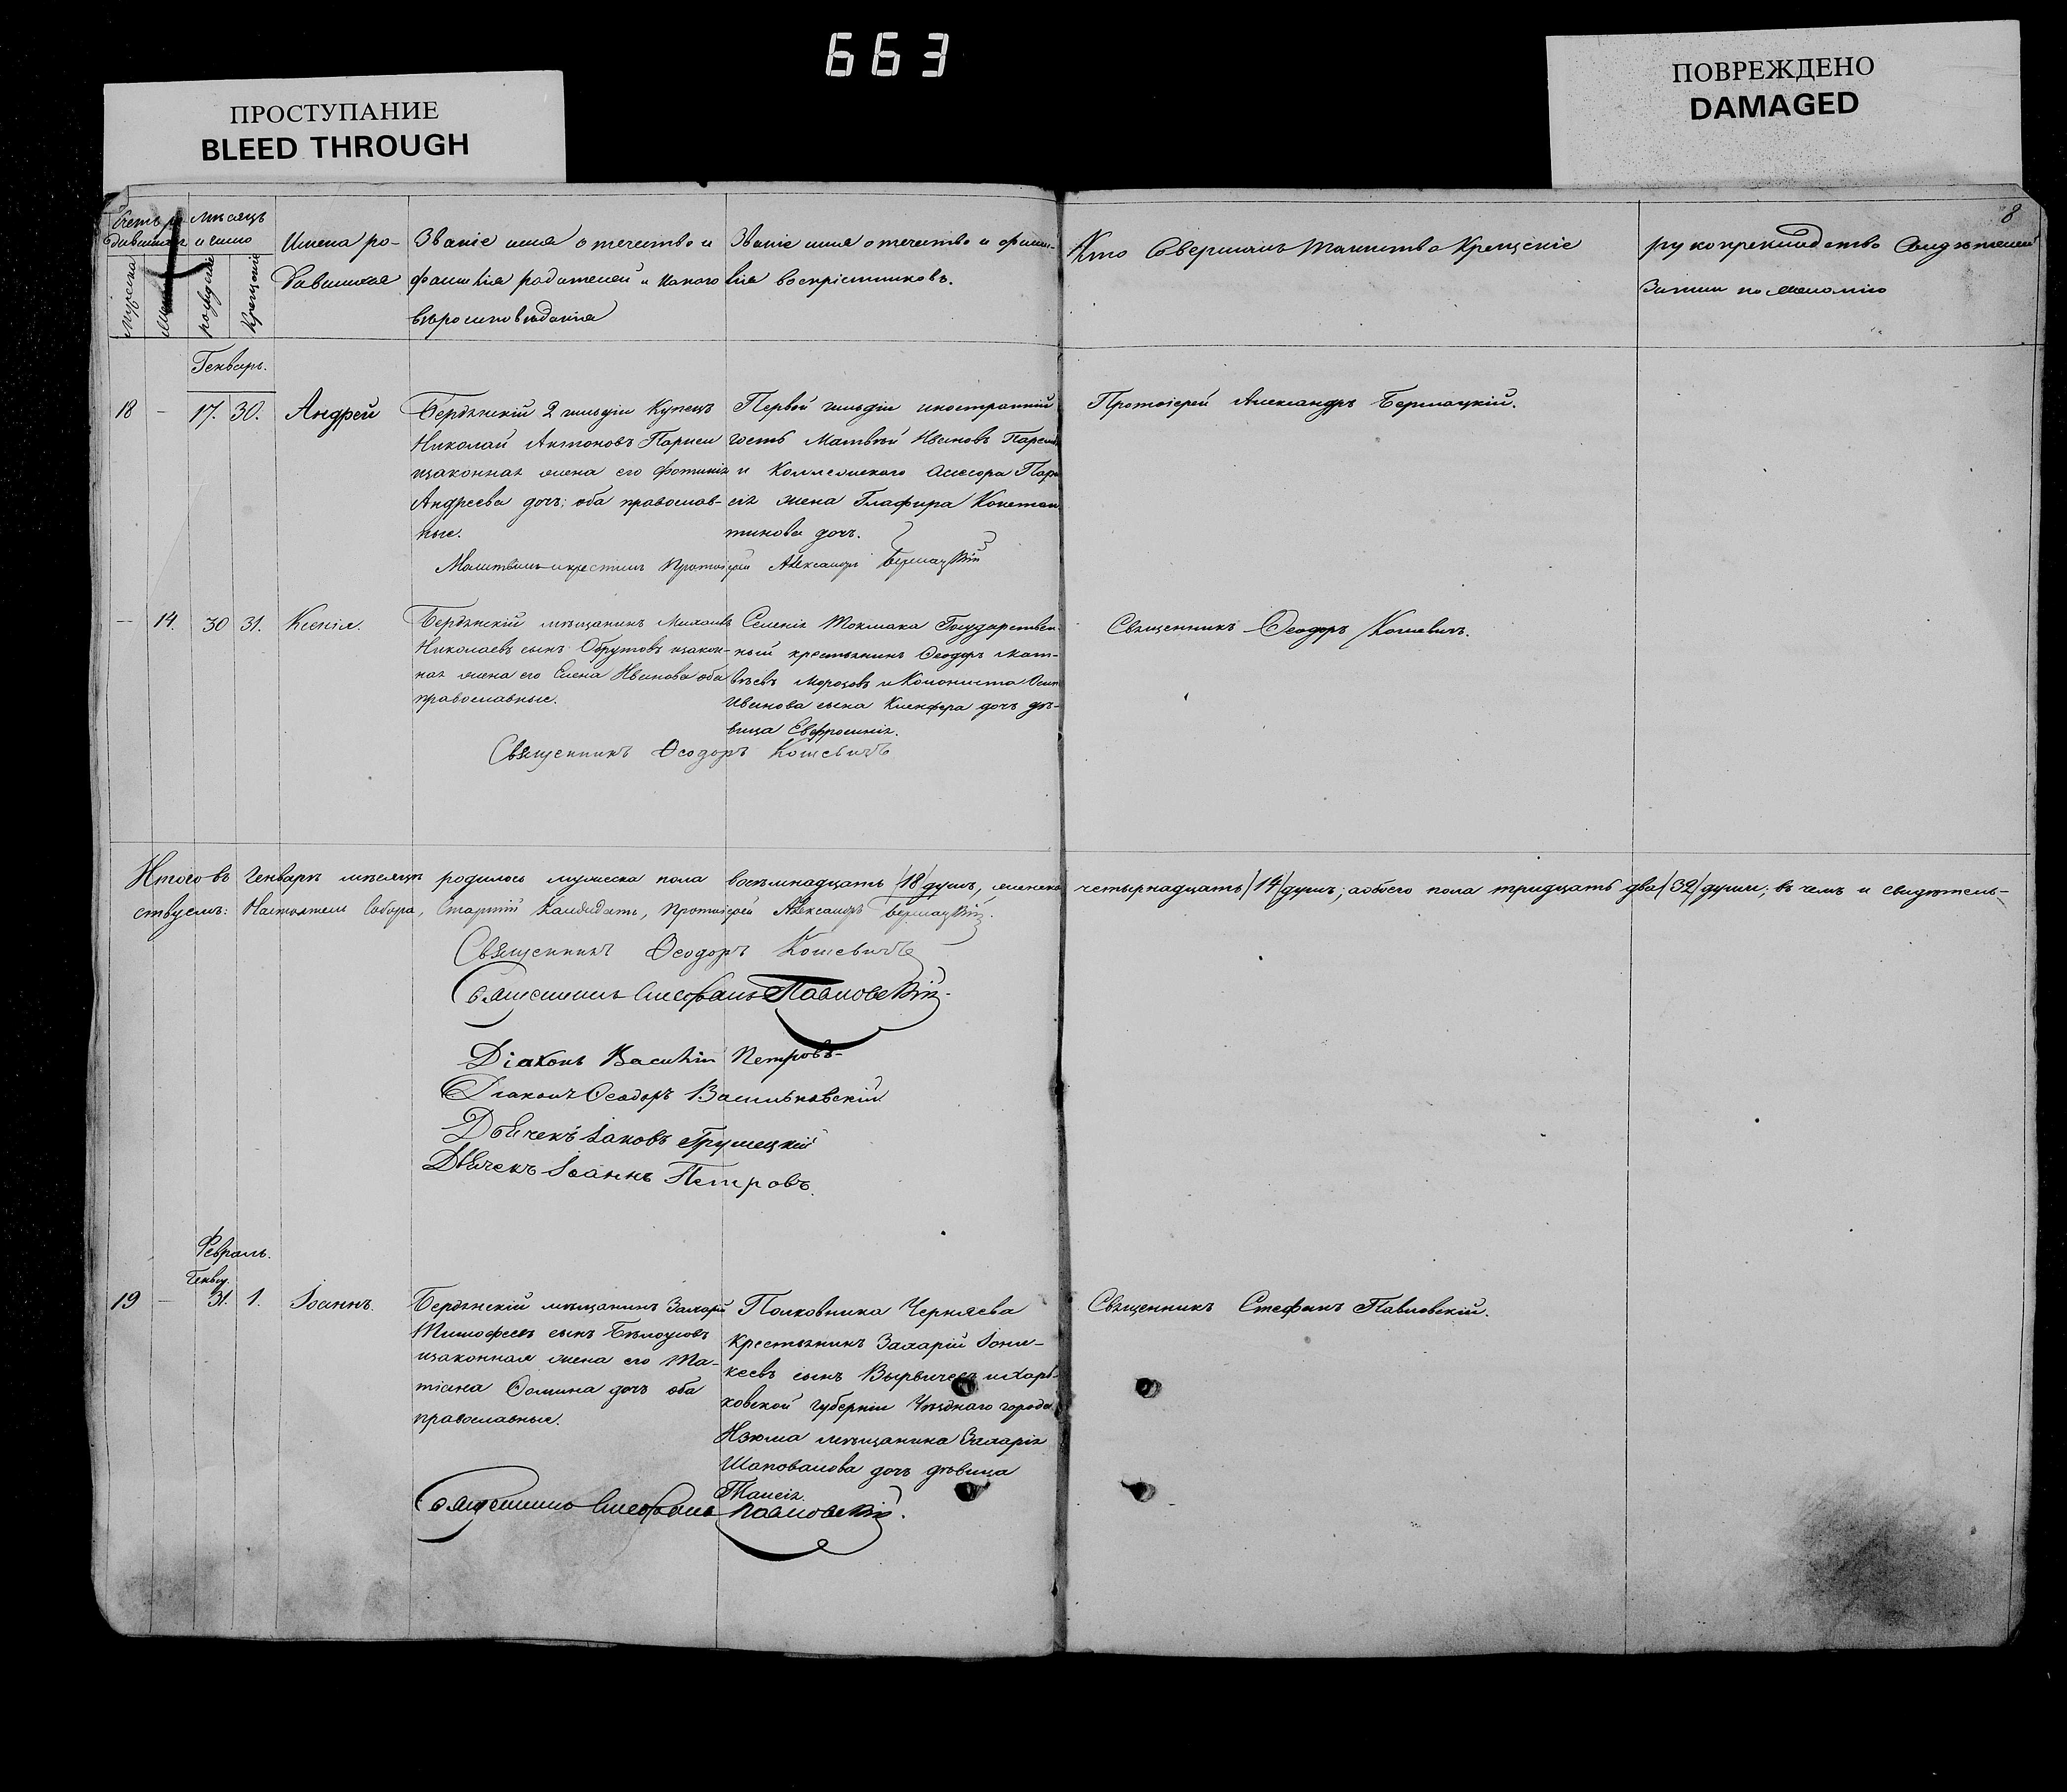 663
ПРОСТУПАНИЕ
BLEED THROUGH
ПОВРЕЖДЕНО
DAMAGED
8
Счетъ ро
дившихся
мѣсяцъ
и число
Имена ро-
дившихся
Званіе имя отечество и
фамилія родителей и какого
вѣроисповѣданія
Званіе имя отечество и фами-
лія воспріемниковъ.
Кто Совершалъ Таинство Крещеніе
рукоприкладство Свидѣтелей
Записи по желанію
мужска
рожденія
Крещенія
Генварь.
18 – 17. 30. Андрей
Бердянскій 2 гильдіи Купецъ
Николай Антоновъ
изаконная жена его Фотинія
Андреева дочь; оба православ-
ные.
Первой гильдіи иностранній
гость Матвѣй Ивановъ
и Коллежскаго Асесора
жена Глафира Констан
тинова дочь.
Протоіерей Александръ
Молитвилъ икрестилъ Протоіерей Александръ
– 14. 30 31. Ксенія.
Бердянскій мѣщанинъ Михаилъ
Николаевъ сынъ Обрутовъ изакон-
ная жена его Елена Иванова оба
православные.
Селенія Токмака Государствен-
ный крестьянинъ Ѳеодоръ Мат-
вѣевъ Морозовъ и Колониста Осипа
Иванова сына Кленфера дочь дѣ-
вица Евфросинія.
Священникъ Ѳеодоръ Кошевичъ.
Священникъ Ѳеодоръ Кошевичъ
Итого въ Генварѣ мѣсяцѣ родилось мужеска пола восемнадцать /18/ душъ, женска четырнадцать /14/ душъ; аобоего пола тридцать два /32/ души; въ чемъ и свидѣтель-
ствуемъ: Настоятель Собора, Старшій Кандидатъ, Протоіерей Александръ
Священникъ Ѳеодоръ Кошевичъ
Священникъ Стефанъ Павловскій.
Діаконъ Василій Петровъ-
Діаконъ Ѳеодоръ Васильковскій
Дьячекъ Іаковъ Грушецкій
Дьячекъ Іоаннъ Петровъ.
Февраль.
Генвр.
19 – 31. 1. Іоаннъ.
Бердянскій мѣщанинъ Захарій
Тимофеевъ сынъ Бѣлоусовъ
изаконная жена его Та-
тіана Ѳомина дочь оба
православные.
Полковника Черняева
крестьянинъ Захарій Іони-
кеевъ сынъ Вырвичевъ и Харь-
ковской губерніи Уѣзднаго города
Изюма мѣщанина Захарія
Шаповалова дочь дѣвица
Таисія.
Священникъ Стефанъ Павловскій.
Священникъ Стефанъ Павловскій.